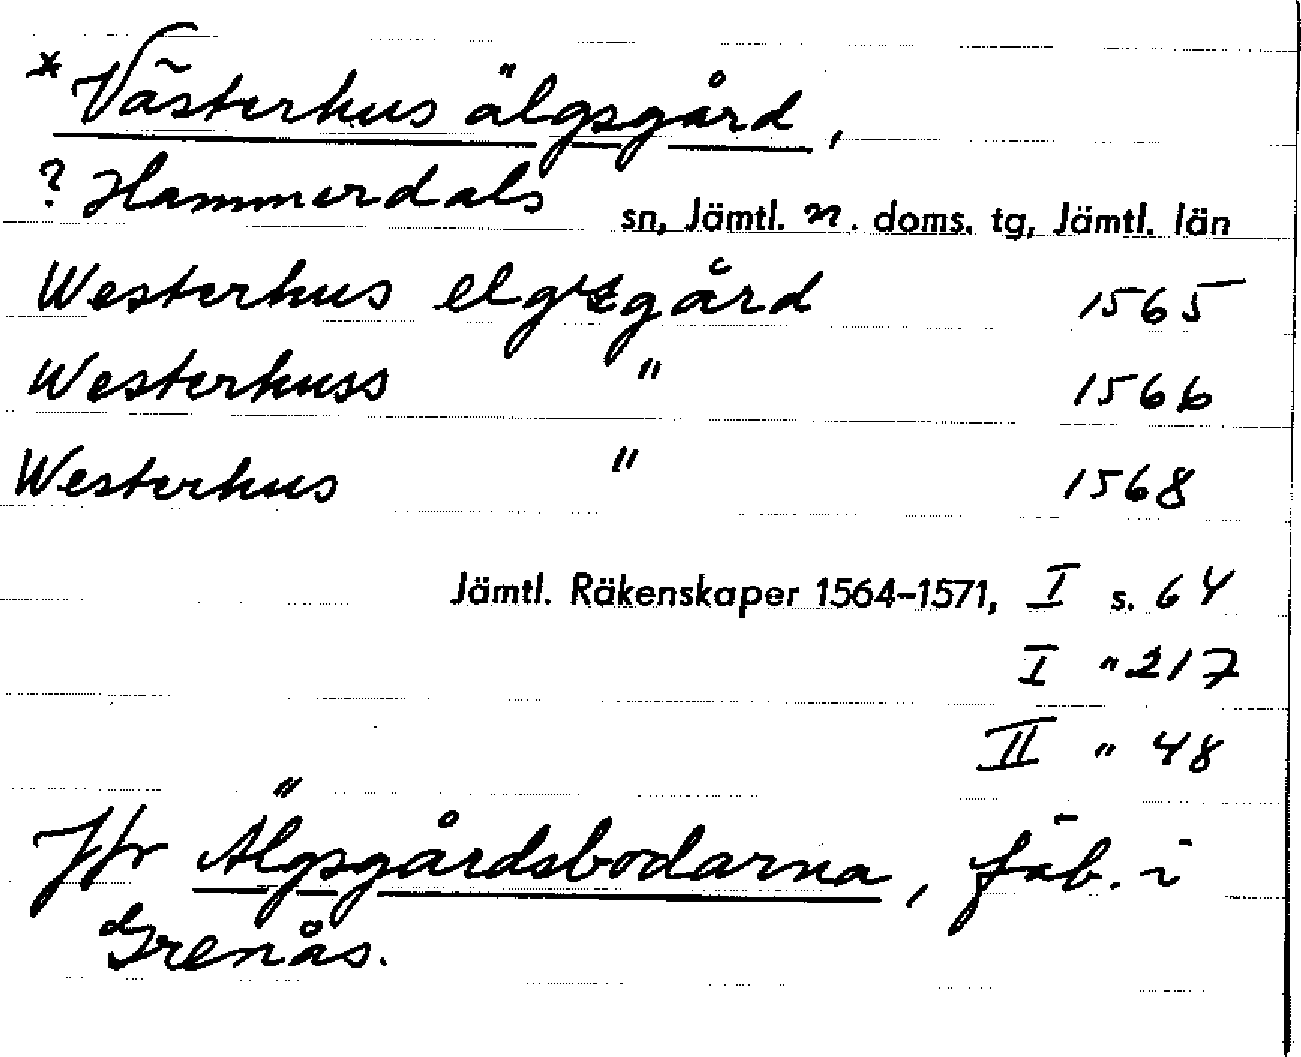 * Västerhus älgsgård,
? Hammerdals sn, Jämtl. n. doms. tg, Jämtl. län
Westerhus elgsgård 1565
Westerhuss " 1566
Westerhus " 1568
Jämtl. Räkenskaper 1564-1571, I s. 64
I " 217
II " 48
Jfr Älgsgårdsbodarna, fäb. i
Grenås.